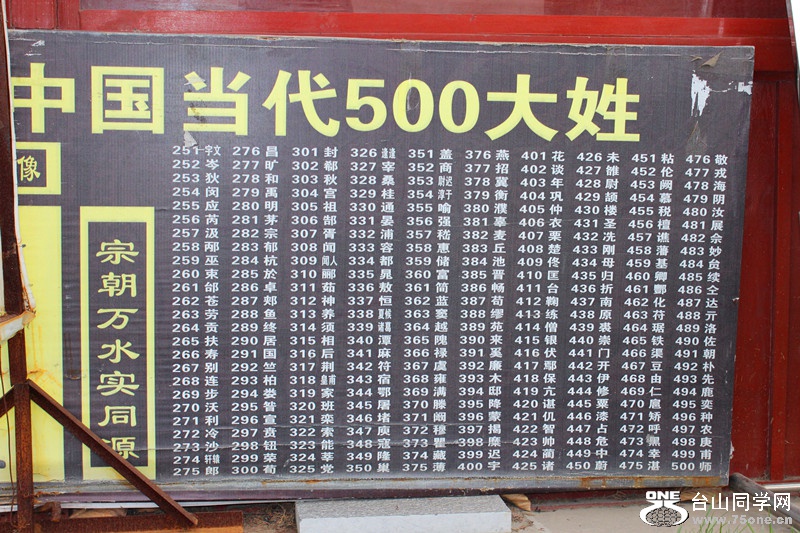 中国当代500大姓
像
宗朝万水实同源
251 宇文 276 昌 301 封 326 逄 351 盖 376 燕 401 花 426 未 451 粘 476 敬
252 岑 277 旷 302 郗 327 宰 352 商 377 招 402 谈 427 雒 452 伦 477 戎
253 狄 278 和 303 秋 328 桑 353 尉迟 378 冀 403 年 428 尉 453 阙 478 海
254 闵 279 禹 304 宫 329 桂 354 淳于 379 衡 404 巩 429 颉 454 慕 479 阴
255 应 280 明 305 祖 330 通 355 喻 380 濮 405 仲 430 楼 455 税 480 汝
256 芮 281 茅 306 郜 331 晏 356 强 381 辜 406 衣 431 圣 456 檀 481 展
257 汲 282 宗 307 胥 332 浦 357 嵇 382 麦 407 栗 432 冼 457 谯 482 佘
258 邴 283 郁 308 闻 333 容 358 惠 383 丘 408 楚 433 刚 458 藩 483 妙
259 巫 284 杭 309 闻人 334 都 359 储 384 池 409 佟 434 母 459 基 484 贠
260 束 285 於 310 郦 335 晁 360 富 385 晋 410 匡 435 归 460 卿 485 续
261 邰 286 卓 311 茹 336 敖 361 简 386 畅 411 台 436 折 461 酆 486 仝
262 苍 287 郏 312 神 337 恒 362 蓝 387 苟 412 鞠 437 南 462 化 487 达
263 劳 288 鱼 313 养 338 夏侯 363 窦 388 缪 413 练 438 原 463 符 488 亓
264 贡 289 终 314 须 339 诸葛 364 越 389 苑 414 僧 439 裘 464 琚 489 洛
265 扶 290 居 315 相 340 潭 365 隗 390 来 415 银 440 崇 465 铁 490 佐
266 寿 291 国 316 后 341 麻 366 禄 391 奚 416 伏 441 门 466 渠 491 朝
267 别 292 竺 317 荆 342 符 367 虞 392 廉 417 鄢 442 开 467 豆 492 朴
268 连 293 柏 318 皇甫 343 宿 368 雍 393 木 418 保 443 伊 468 由 493 先
269 步 294 娄 319 家 344 鄂 369 满 394 邸 419 亢 444 修 469 仁 494 鹿
270 沃 295 昝 320 班 345 屠 370 滕 395 降 420 谌 445 粟 470 扈 495 奕
271 利 296 宣 321 栾 346 堵 371 阚 396 蒙 421 仉 446 漆 471 矫 496 种
272 冷 297 贲 322 索 347 庾 372 穆 397 揭 422 智 447 占 472 呼 497 农
273 沙 298 钮 323 能 348 寇 373 瞿 398 糜 423 帅 448 危 473 黑 498 庚
274 轩辕 299 荣 324 莘 349 隆 374 藏 399 迟 424 蔺 449 中 474 幸 499 甫
275 郎 300 荀 325 党 350 巢 375 薄 400 宇 425 诸 450 蔚 475 湛 500 师
ONE 台山同学网
www.75one.cn